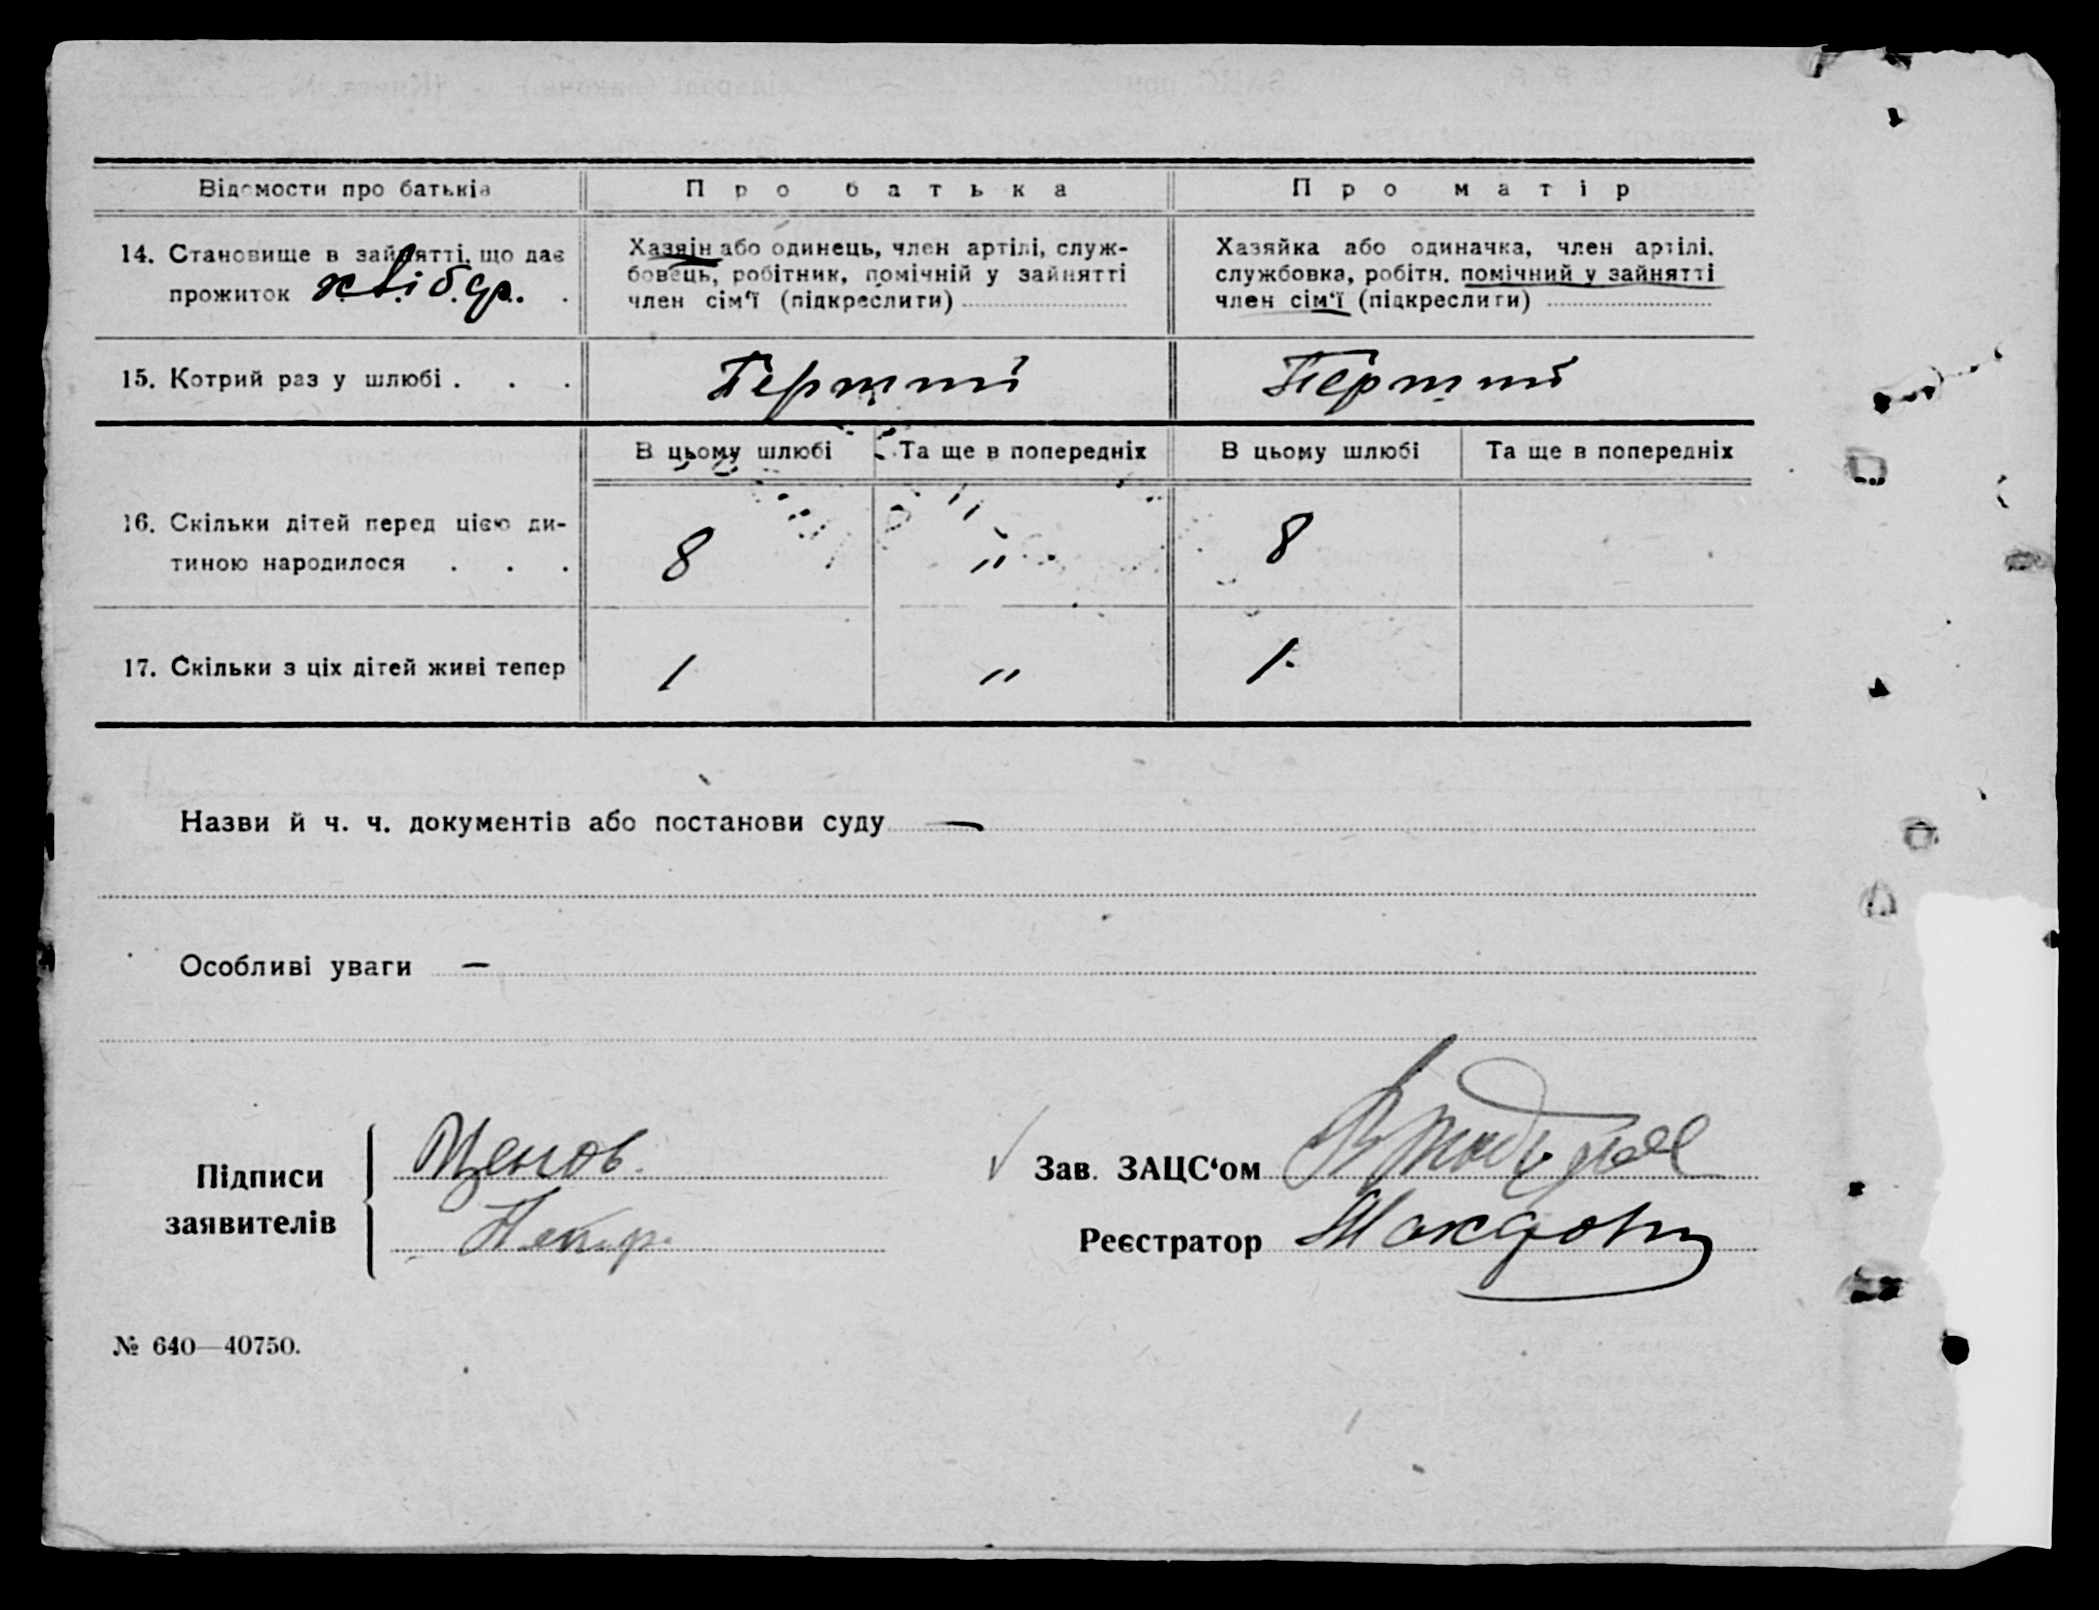 Відомости про батьків
Про батька
Про матір
14. Становище в зайнятті, що дає
прожиток хлібор.
Хазяїн або одинець, член артілі, служ-
бовець, робітник, помічній у зайнятті
член сім'ї (підкреслити)
Хазяйка або одиначка, член артілі,
службовка, робітн. помічний у зайнятті
член сім'ї (підкреслити)
15. Котрий раз у шлюбі . . .
Перший
Перший
В цьому шлюбі
Та ще в попередніх
В цьому шлюбі
Та ще в попередніх
16. Скільки дітей перед цією ди-
тиною народилося . . .
8
"
8
17. Скільки з ціх дітей живі тепер
1
"
1.
Назви й ч. ч. документів або постанови суду —
Особливі уваги —
Підписи
заявителів
Ценов
Зав. ЗАЦС'ом
Реєстратор
№ 640—40750.